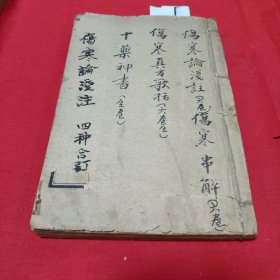 傷寒論淺註六卷傷寒串解六卷
傷寒真方歌括(六卷全)
十藥神書(全卷)
傷寒論淺注 四种合訂